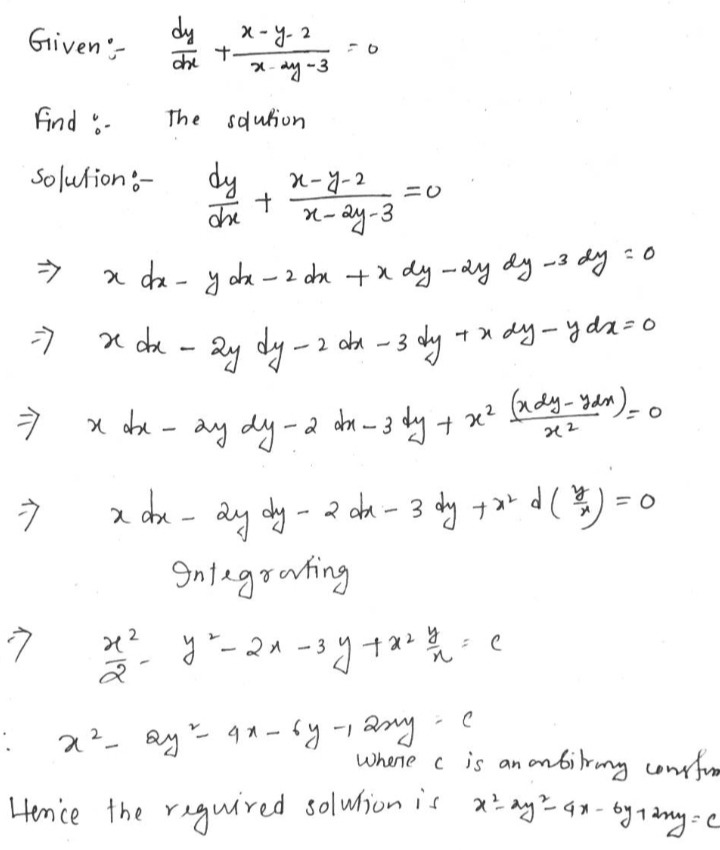 Given :- dy/dx + (x-y-2)/(x-2y-3) = 0
Find :- The solution
Solution :- dy/dx + (x-y-2)/(x-2y-3) = 0
⇒ x dx - y dx - 2 dx + x dy - 2y dy - 3 dy = 0
⇒ x dx - 2y dy - 2 dx - 3 dy + x dy - y dx = 0
⇒ x dx - 2y dy - 2 dx - 3 dy + x² (x dy - y dx)/x² = 0
⇒ x dx - 2y dy - 2 dx - 3 dy + x² d(y/x) = 0
Integrating
⇒ x²/2 - y² - 2x - 3y + x² y/x = c
∴ x² - 2y² - 4x - 6y + 2xy = c
where c is an arbitrary
Hence the required solution is x² - 2y² - 4x - 6y + 2xy = c